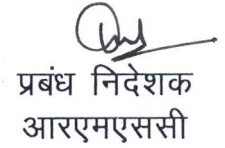 प्रबंध निदेशक
आरएमएससी